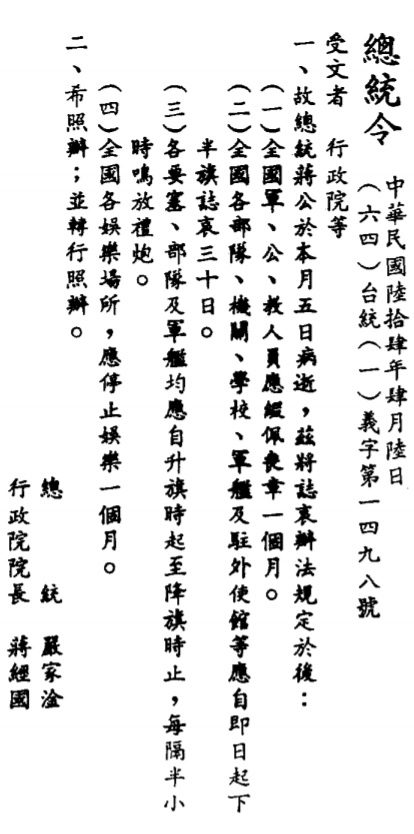 總統令
中華民國陸拾肆年肆月陸日
（六四）台統（一）義字第一四九八號
受文者　行政院等
一、故總統蔣公於本月五日病逝，茲將誌哀辦法規定於後：
（一）全國軍、公、教人員應綴佩喪章一個月。
（二）全國各部隊、機關、學校、軍艦及駐外使館等應自即日起下
半旗誌哀三十日。
（三）各要塞、部隊及軍艦均應自升旗時起至降旗時止，每隔半小
時鳴放禮炮。
（四）全國各娛樂場所，應停止娛樂一個月。
二、希照辦；並轉行照辦。
總　　統　嚴家淦
行政院院長　蔣經國